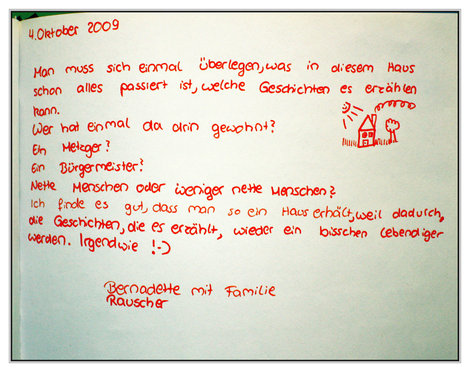 4. Oktober 2009
Man muss sich einmal überlegen, was in diesem Haus
schon alles passiert ist, welche Geschichten es erzählen
kann.
Wer hat einmal da drin gewohnt?
Ein Metzger?
Ein Bürgermeister?
Nette Menschen oder weniger nette Menschen?
Ich finde es gut, dass man so ein Haus erhält, weil dadurch,
die Geschichten, die es erzählt, wieder ein bisschen lebendiger
werden. Irgendwie !-)
Bernadette mit Familie
Rauscher